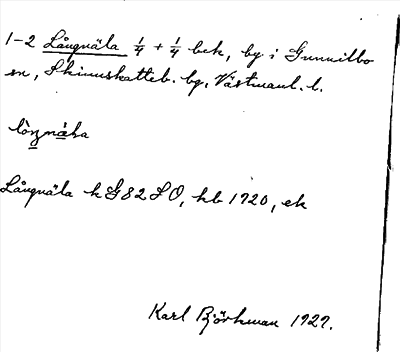 1-2 Långnäla 1/4 + 1/4 bek, by i Gunnilbo
sn, Skinnskatteb. bg, Västmanl. l.
Långnäla k G82SO, hb 1920, ek
Karl Björkman 1929.